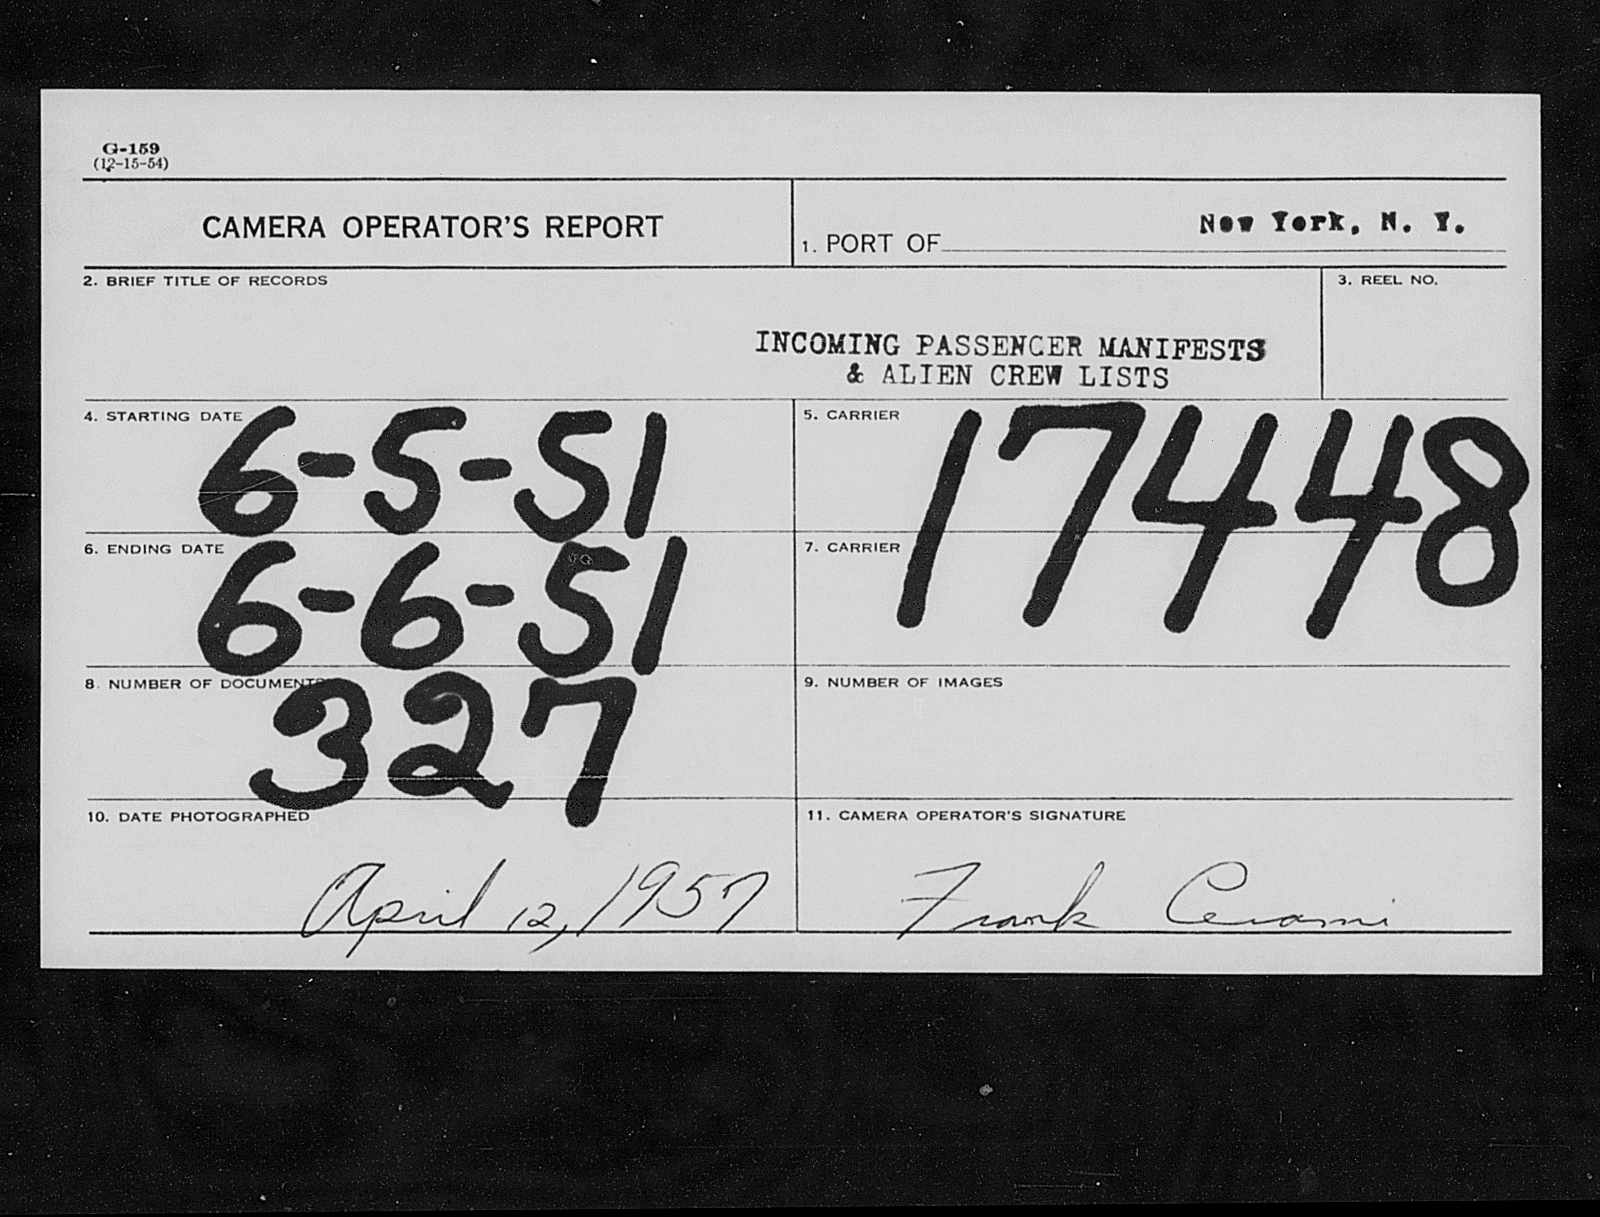 G-159
(12-15-54)
CAMERA OPERATOR'S REPORT
1. PORT OF New York, N. Y.
2. BRIEF TITLE OF RECORDS
3. REEL NO.
INCOMING PASSENGER MANIFESTS
& ALIEN CREW LISTS
4. STARTING DATE
6-5-51
5. CARRIER
17448
6. ENDING DATE
6-6-51
7. CARRIER
8. NUMBER OF DOCUMENTS
327
9. NUMBER OF IMAGES
10. DATE PHOTOGRAPHED
April 12, 1957
11. CAMERA OPERATOR'S SIGNATURE
Frank Cerami